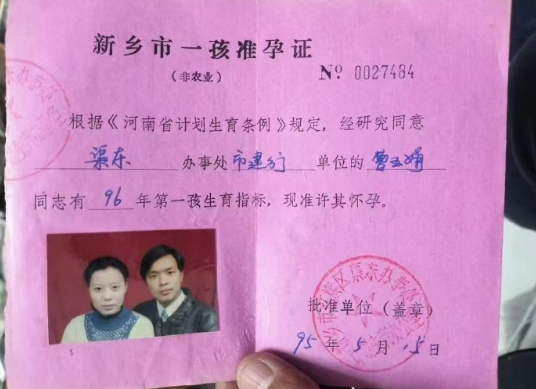 新乡市一孩准孕证
（非农业） Nº 0027484
根据《河南省计划生育条例》规定，经研究同意
渠东 办事处 市建行 单位的 曹玉娟
同志有 96 年第一孩生育指标，现准许其怀孕。
批准单位（盖章）
95 年 5 月 15 日